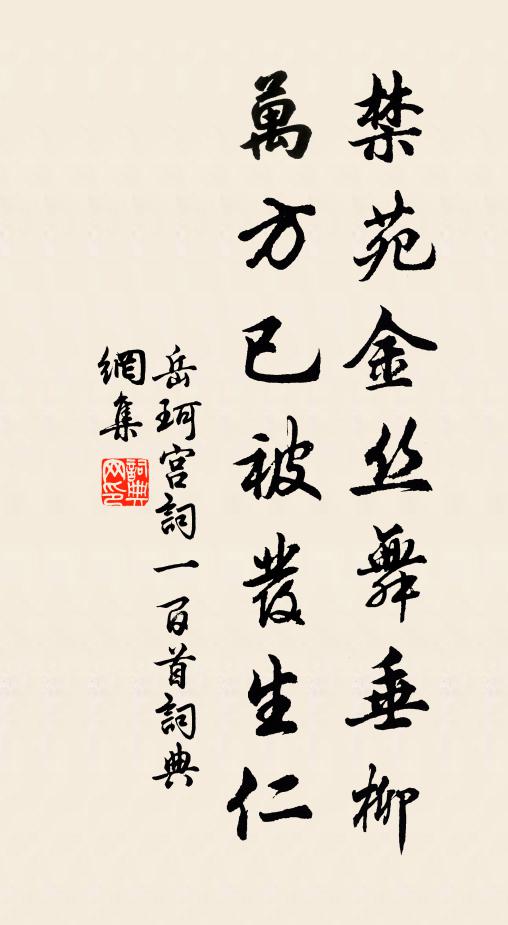 禁苑金丝舞垂柳
萬方已被發生仁
岳珂宫詞一百首詞典
網集
詞典网印